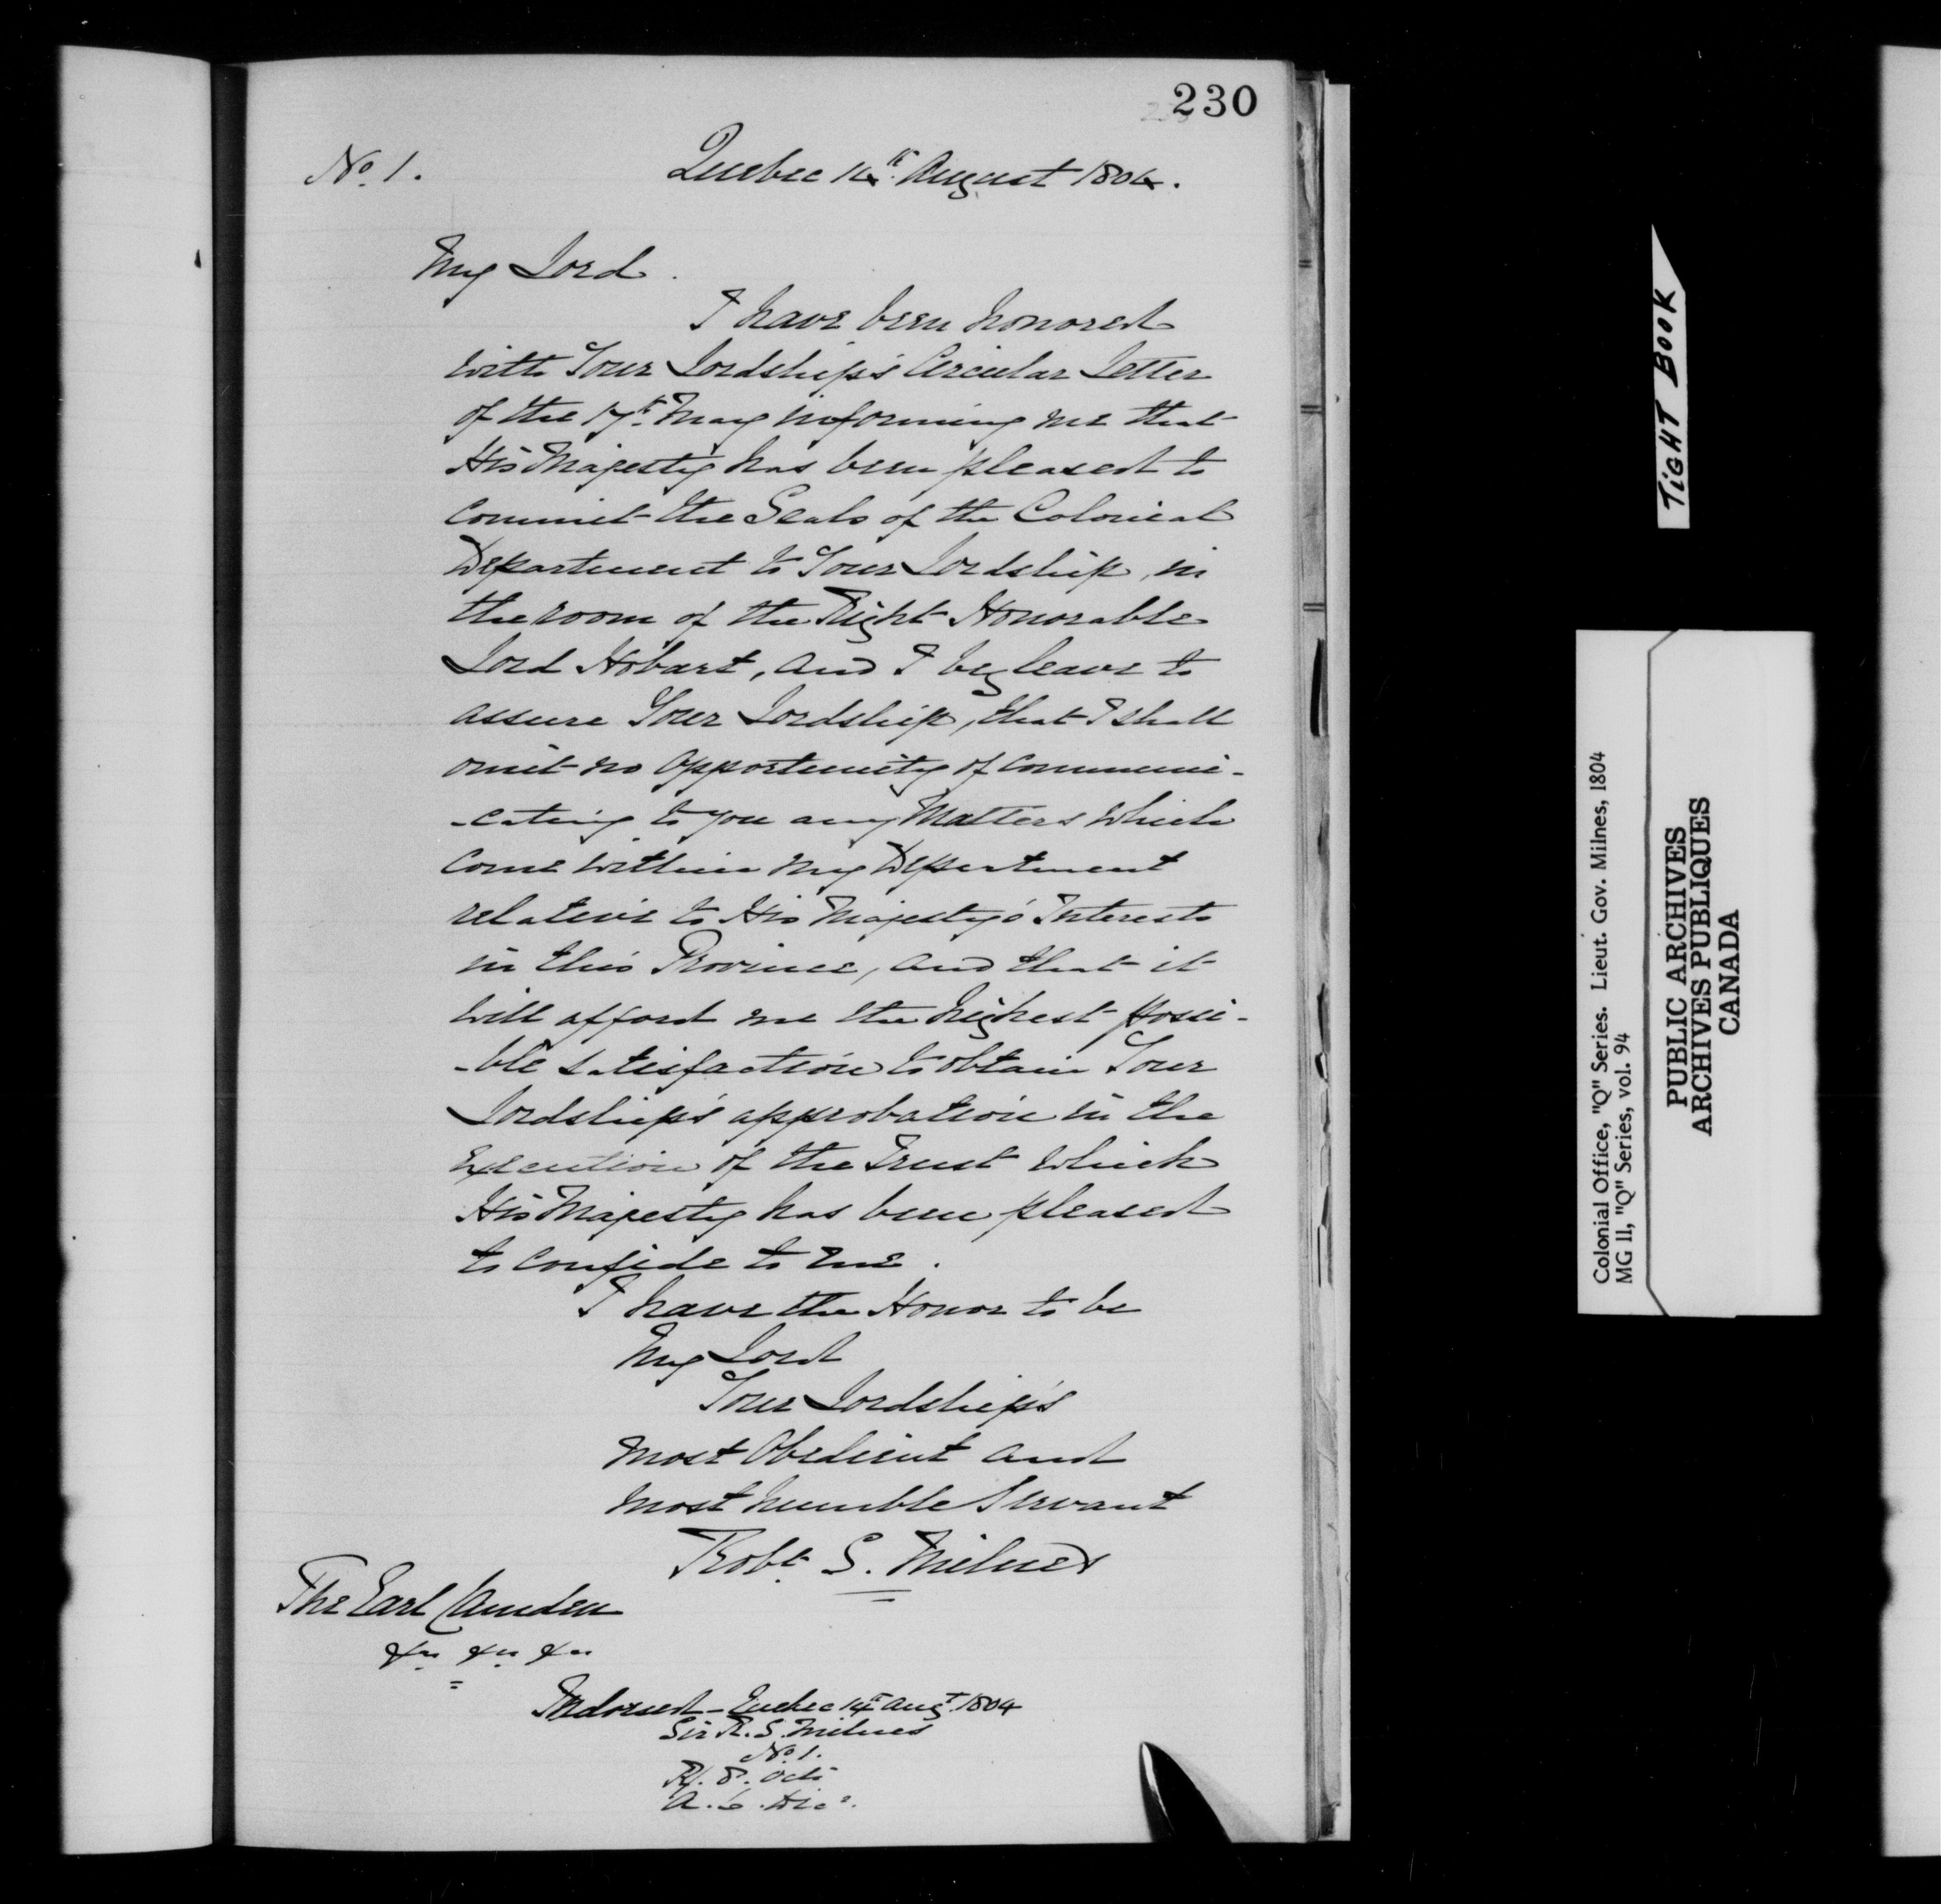 230
No. 1.
Quebec 14th August 1804.
My Lord.
I have been honored
with Your Lordship's Circular Letter
of the 17th May informing me that
His Majesty has been pleased to
commit the Seals of the Colonial
Department to Your Lordship, in
the room of the Right Honorable
Lord Hobart, and I beg leave to
assure Your Lordship, that I shall
omit no Opportunity of communi-
-cating to you any Matters which
come within my Department
relative to His Majesty's Interests
in this Province, and that it
will afford me the highest possi-
-ble satisfaction to obtain Your
Lordship's approbation in the
Execution of the Trust which
His Majesty has been pleased
to confide to me.
I have the Honor to be
My Lord
Your Lordship's
most Obedient and
most humble Servant
Robt S. Milnes
The Earl Camden
&c &c &c
Indorsed - Quebec 14th Augt 1804
Sir R. S. Milnes
No. 1.
R. 8. Oct
A. 6. Decr.
TIGHT BOOK
Colonial Office, "Q" Series. Lieut. Gov. Milnes, 1804
MG 11, "Q" Series, vol. 94
PUBLIC ARCHIVES
ARCHIVES PUBLIQUES
CANADA